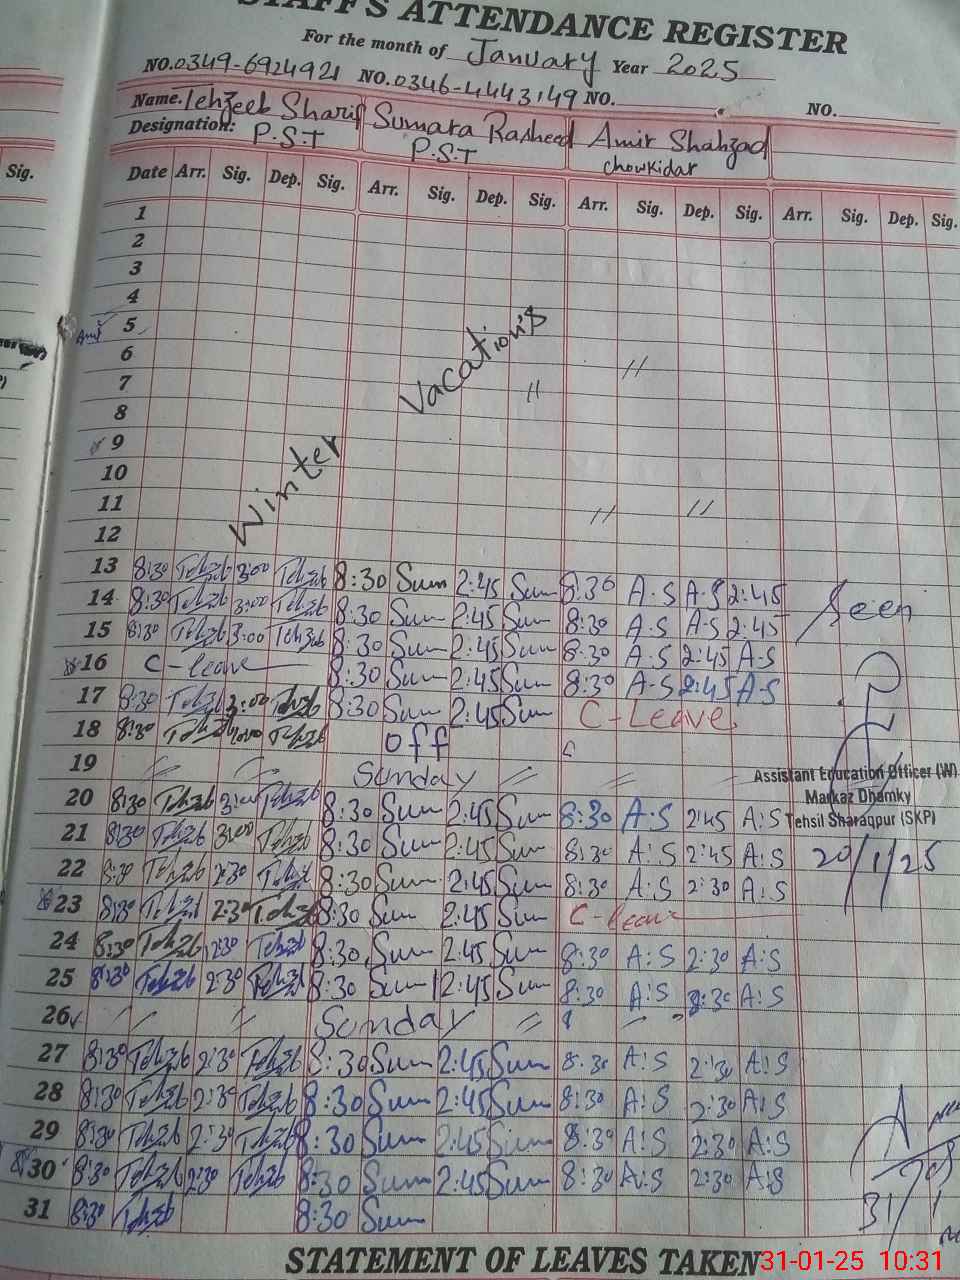 STAFF'S ATTENDANCE REGISTER
For the month of January Year 2025
NO.0349-6924921 NO.0346-4443149 NO. NO.
Name. Tehzeeb Sharif Sumara Rasheed Amir Shahzad
Designation: P.S.T P.S.T Chowkidar
Sig. Date Arr. Sig. Dep. Sig. Arr. Sig. Dep. Sig. Arr. Sig. Dep. Sig. Arr. Sig. Dep. Sig.
1
2
3
4
Amir 5
6 "
7 Vacation's "
8
9
10
11 " "
12 Winter
13 8:30 3:00 8:30 Sum 2:45 Sum 8:30 A.S A.S 2:45
14 8:30 3:00 8:30 Sum 2:45 Sum 8:30 A.S A.S 2:45 Seen
15 8:30 3:00 8:30 Sum 2:45 Sum 8:30 A.S 2:45 A-S
16 C-leave 8:30 Sum 2:45 Sum 8:30 A-S 2:45 A-S
17 8:30 3:00 8:30 Sum 2:45 Sum C-Leave
18 8:30 Off
19 Sunday
Assistant Education Officer (W)
Markaz Dhamky
Tehsil Sharaqpur (SKP)
20/1/25
20 8:30 3:00 8:30 Sum 2:45 Sum 8:30 A.S 2:45 A:S
21 8:30 3:00 8:30 Sum 2:45 Sum 8:30 A:S 2:45 A:S
22 8:30 2:30 8:30 Sum 2:45 Sum 8:30 A:S 2:30 A:S
23 8:30 2:30 8:30 Sum 2:45 Sum C-leave
24 8:30 2:30 8:30 Sum 2:45 Sum 8:30 A:S 2:30 A:S
25 8:30 2:30 8:30 Sum 2:45 Sum 8:30 A:S 2:30 A:S
26 Sunday
27 8:30 2:30 8:30 Sum 2:45 Sum 8:30 A:S 2:30 A:S
28 8:30 2:30 8:30 Sum 2:45 Sum 8:30 A:S 2:30 A:S
29 8:30 2:30 8:30 Sum 2:45 Sum 8:30 A:S 2:30 A:S
30 8:30 2:30 8:30 Sum 2:45 Sum 8:30 A:S 2:30 A:S
31 8:30 8:30 Sum 31/1
STATEMENT OF LEAVES TAKEN
31-01-25 10:31